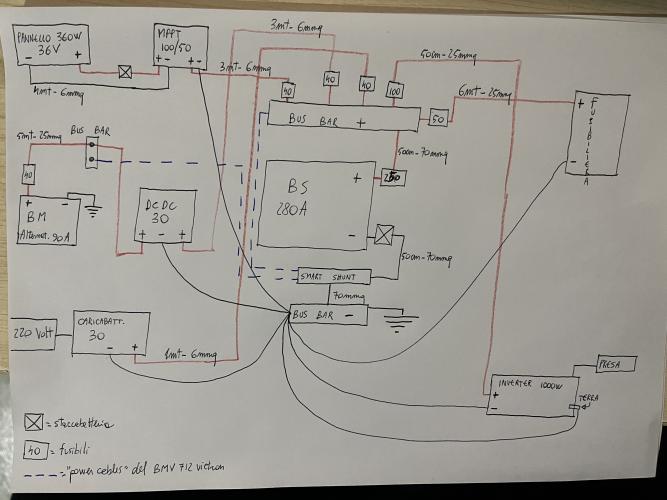 PANNELLO 360W
36V
- +
MPPT
100/50
+ - + -
4mt-6mmq
3mt-6mmq
3mt-6mmq
50cm-25mmq
40
40
40
100
BUS BAR +
50
6mt-25mmq
+
-
FUSIBILIERA
5mt-25mmq
BUS BAR
40
+ -
BM
Alternat. 90A
DC DC
30
+ - +
BS
280A
+
-
250
50cm-70mmq
50cm-70mmq
SMART SHUNT
70mmq
BUS BAR -
220 Volt
CARICABATT.
30
- +
1mt-6mmq
INVERTER 1000W
+
-
PRESA
TERRA
= staccabatteria
40 = fusibili
= "power cables" del BMV 712 victron